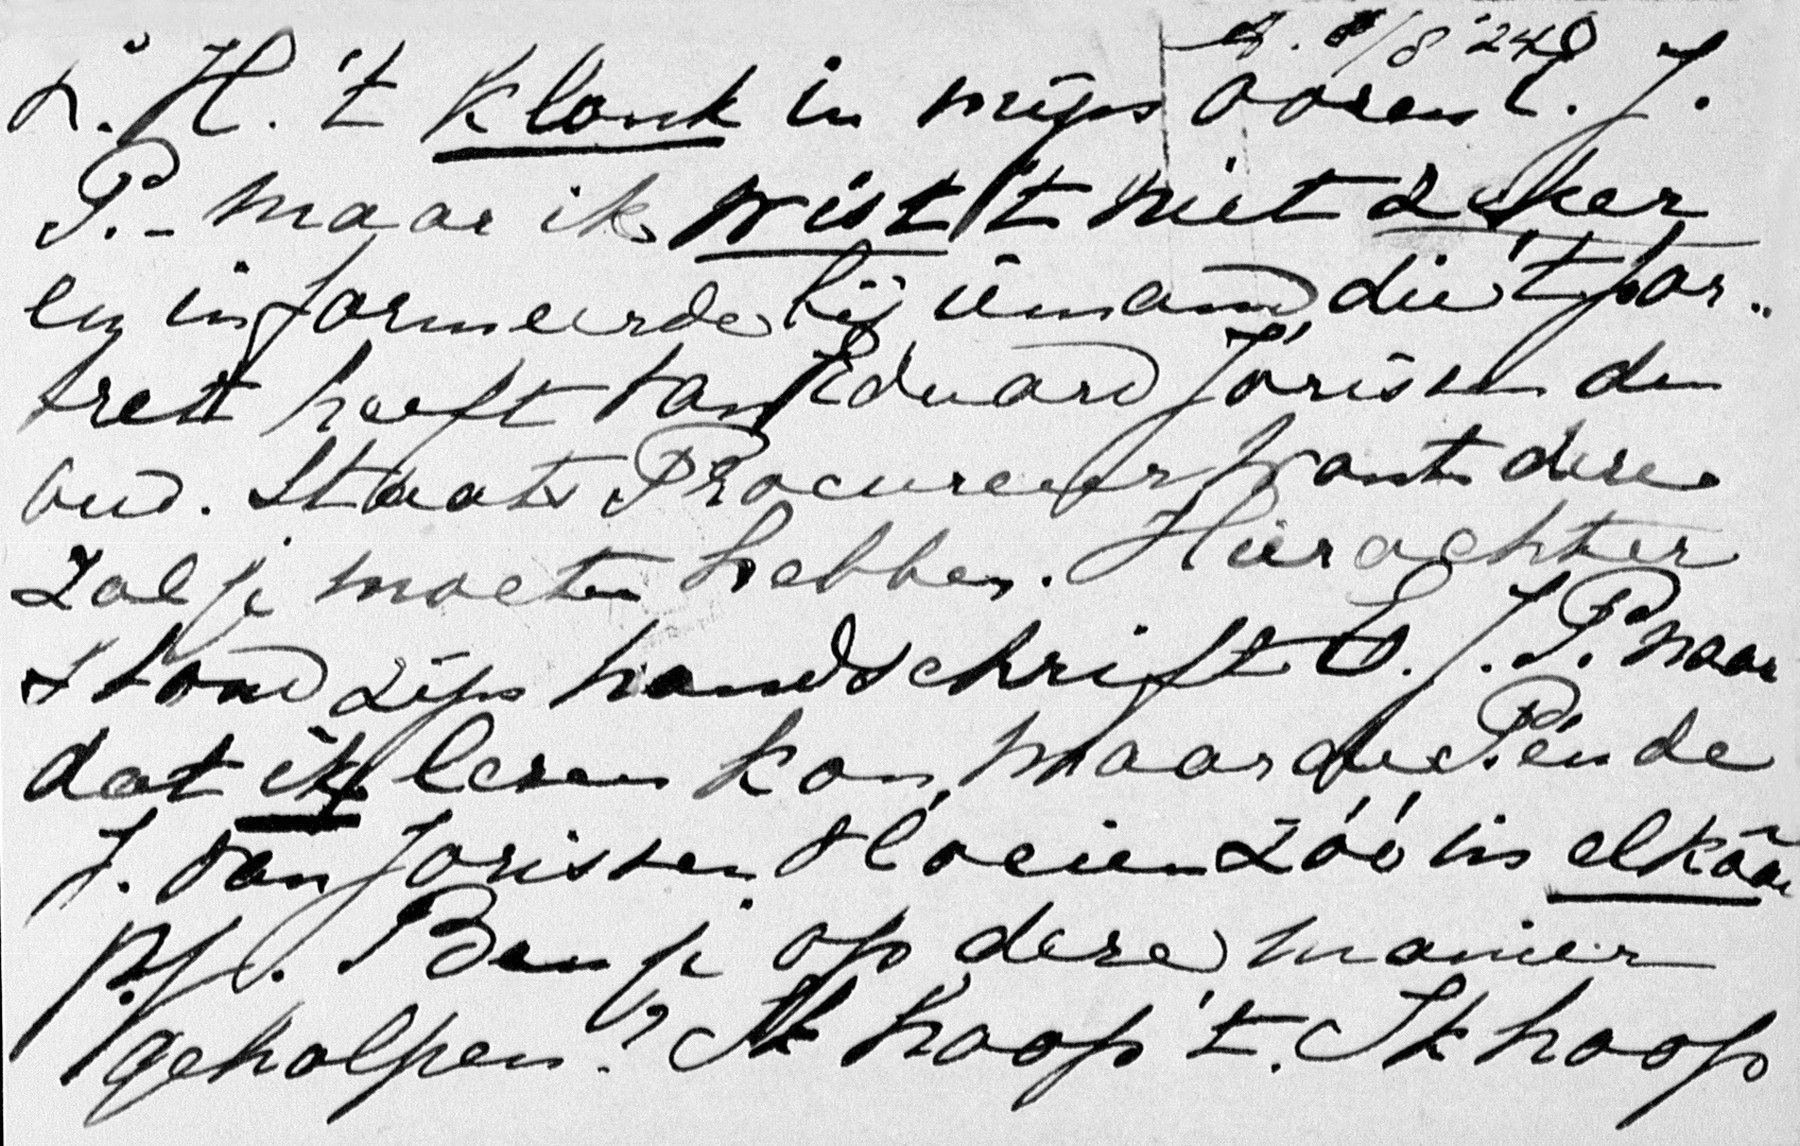 A. 8/8 '240
L. H. 't klonk in mijn ooren E. J.
P. - maar ik wist 't niet zeker
en informeerde bij iemand die 't por-
tret heeft van Eduard Jorissen den
oud. Staats Procureur want deze
zal je moeten hebben. Hierachter
stond zijn handschrift E. J. P. naar
dat ik lezen kon, maar die P. en de
J. van Jorissen vloeien zóó in elkaar
P.J. Ben je op deze manier
geholpen? Ik hoop 't. Ik hoop